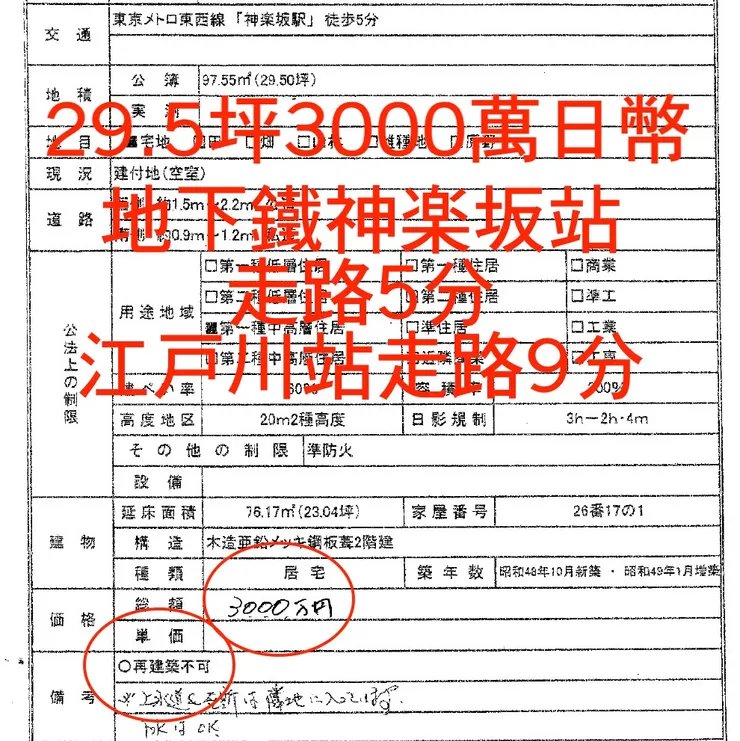 交通 東京メトロ東西線「神楽坂駅」徒歩5分
地積 公簿 97.55㎡(29.50坪)
実測
29.5坪3000萬日幣
地目 ■宅地 □田 □畑 □山林 □雑種地 □原野
現況 建付地(空室)
道路 約1.5m～2.2m 公道
地下鐵神楽坂站
南側 約0.9m～1.2m 私道
公法上の制限 用途地域 □第一種低層住居 □第一種住居 □商業
走路5分
□第二種低層住居 □第二種住居 □準工
■第一種中高層住居 □準住居 □工業
江戸川站走路9分
□第二種中高層住居 □近隣商業 □工専
建ぺい率 60% 容積率
高度地区 20m2種高度 日影規制 3h－2h・4m
その他の制限 準防火
設備
建物 延床面積 76.17㎡(23.04坪) 家屋番号 26番17の1
構造 木造亜鉛メッキ鋼板葺2階建
種類 居宅 築年数 昭和48年10月新築・昭和49年1月増築
価格 総額 3000万円
単価
備考 ○再建築不可
※上水道
は OK